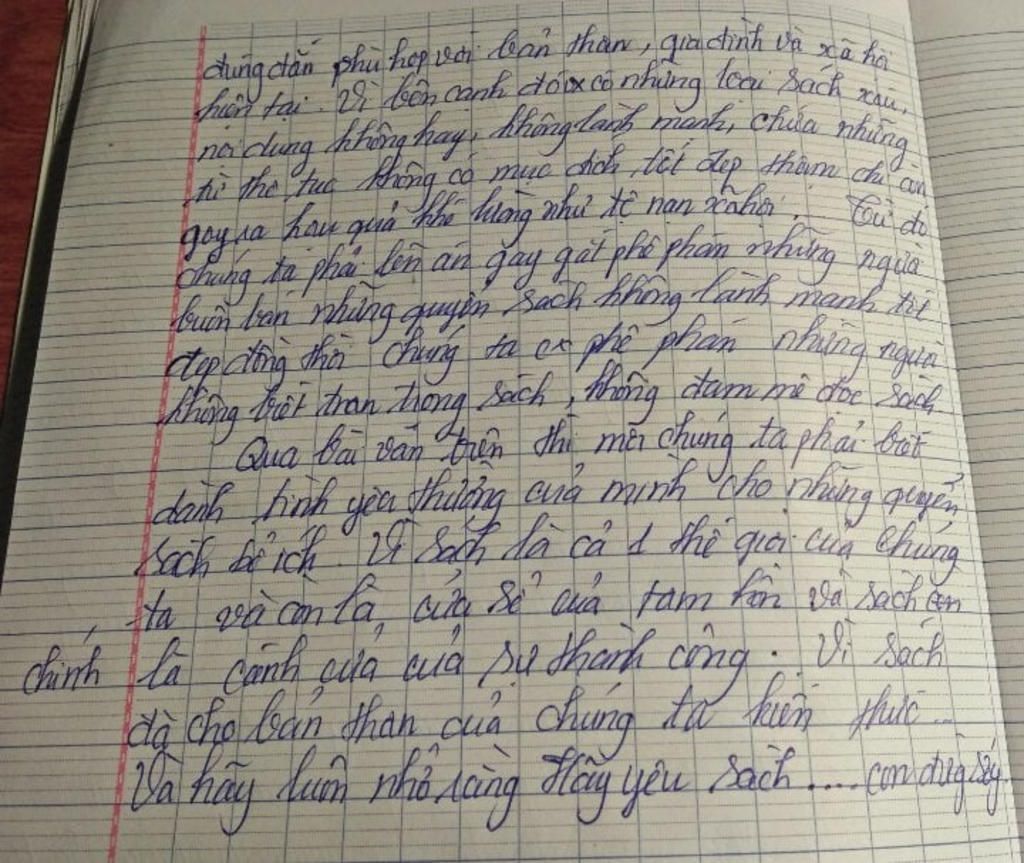 đúng đắn phù hợp với bản thân, gia đình và xã hội
hiện tại. Vì bên cạnh đó có những loại sách xấu,
nội dung không hay, không lành mạnh, chứa những
thứ thô tục không có mục đích, tốt đẹp thậm chí còn
gây ra hậu quả khó lường như tệ nạn xã hội. Từ đó
chúng ta phải lên án gay gắt phê phán những người
buôn bán những quyển sách không lành mạnh tốt
đẹp đồng thời chúng ta phê phán những người
không biết trân trọng sách, không đam mê đọc sách
Qua bài văn trên thì mỗi chúng ta phải biết
dành tình yêu thương của mình cho những quyển
sách bổ ích. Vì sách là cả 1 thế giới của chúng
ta và còn là cửa sổ của tâm hồn và sách còn
chính là cánh cửa của sự thành công. Vì sách
đã cho bản thân của chúng ta kiến thức...
Và hãy luôn nhớ rằng Hãy yêu sách.... con đường sống.